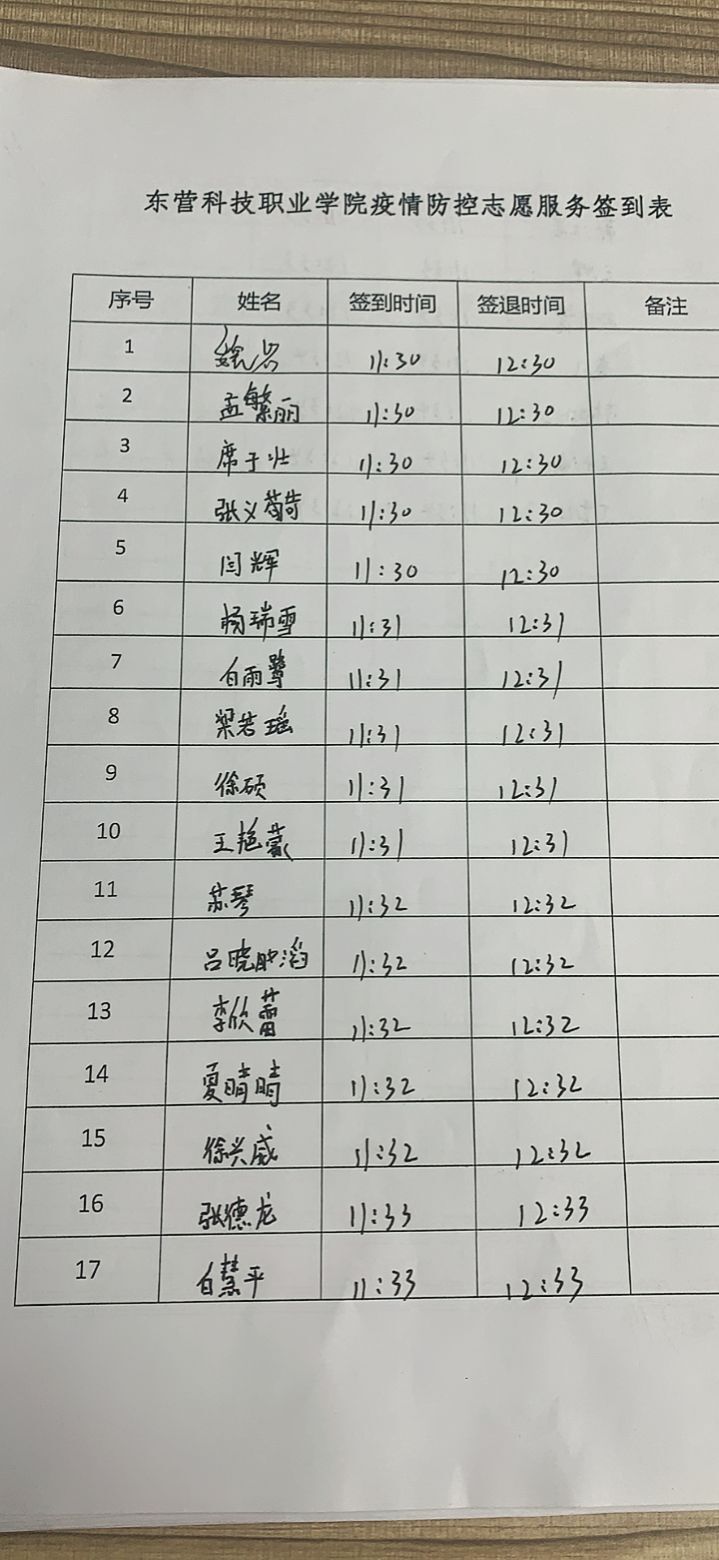 东营科技职业学院疫情防控志愿服务签到表
序号 姓名 签到时间 签退时间 备注
1 11:30 12:30
2 孟繁丽 11:30 12:30
3 席于壮 11:30 12:30
4 张义 11:30 12:30
5 闫辉 11:30 12:30
6 杨瑞雪 11:31 12:31
7 白雨鹭 11:31 12:31
8 梁若瑶 11:31 12:31
9 徐硕 11:31 12:31
10 王艳蒙 11:31 12:31
11 苏琴 11:32 12:32
12 吕晓 11:32 12:32
13 李欣蕾 11:32 12:32
14 夏晴晴 11:32 12:32
15 徐兴威 11:32 12:32
16 张德龙 11:33 12:33
17 白慧平 11:33 12:33